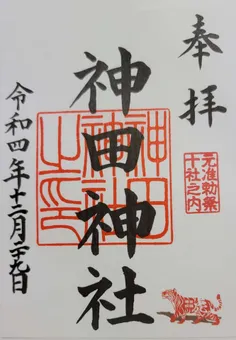 奉拝
元准勅祭
十社之内
神田神社
神田
神社
之印
令和四年十二月二十九日